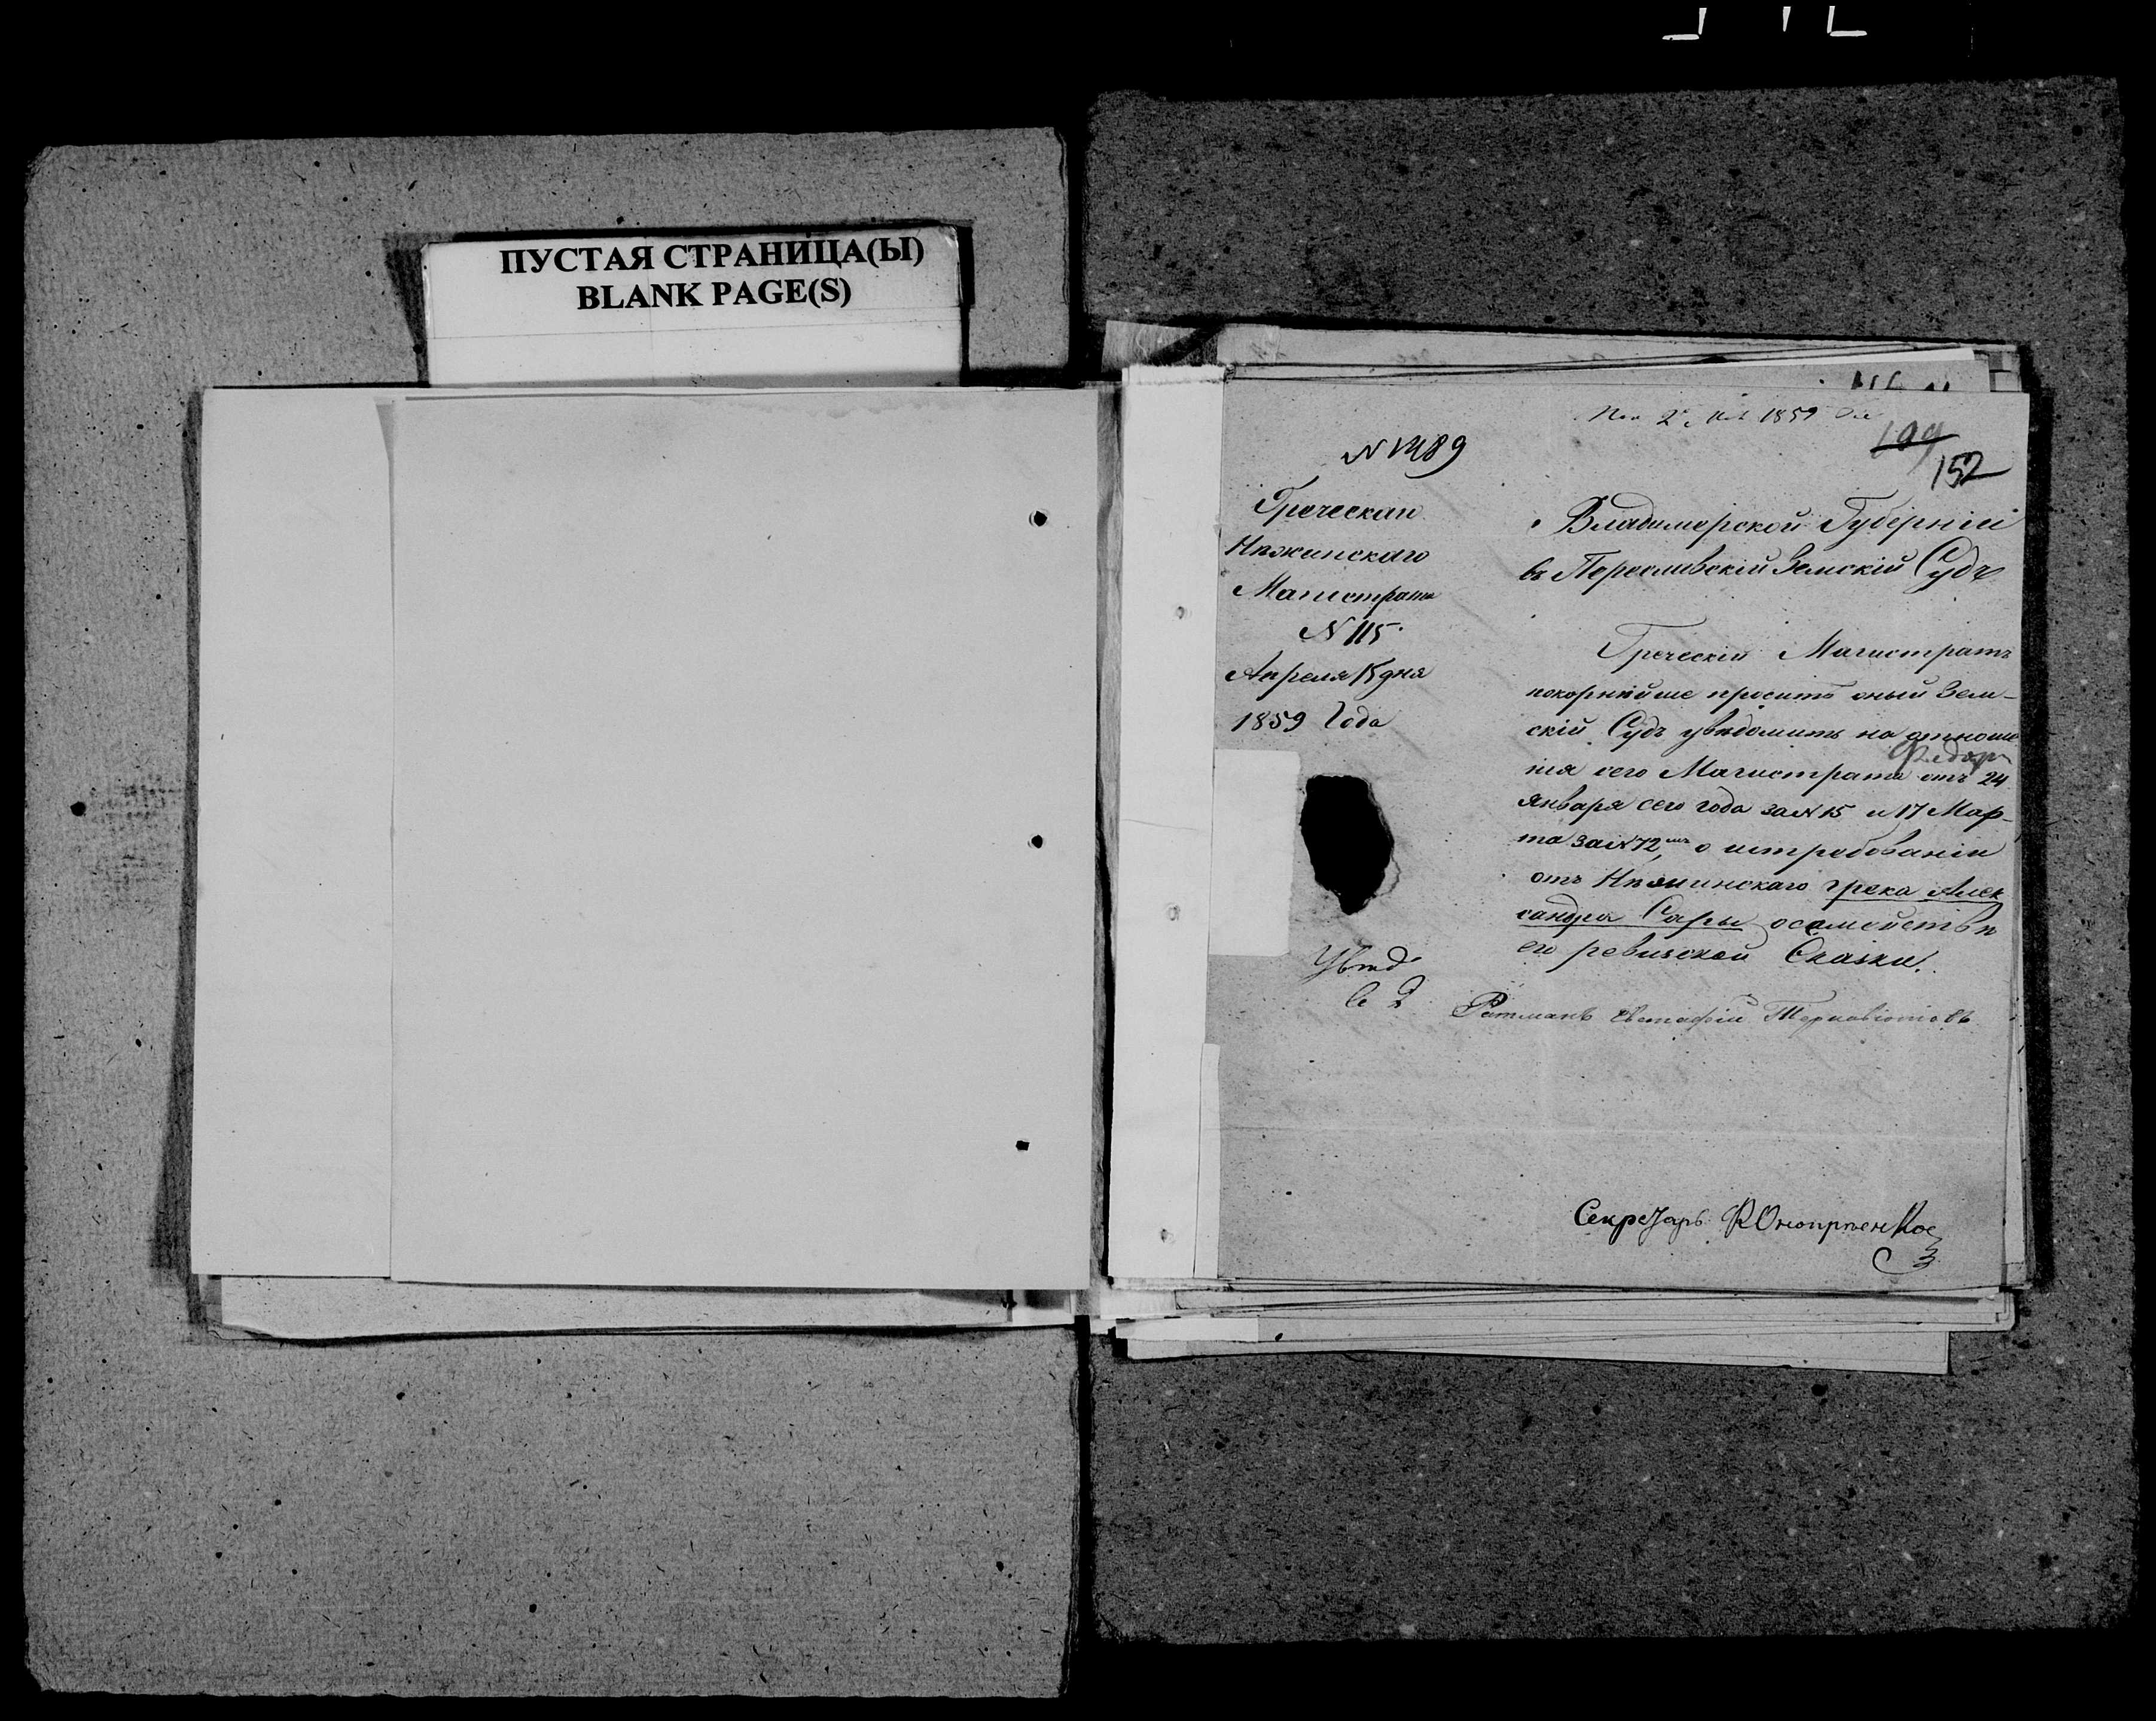 ПУСТАЯ СТРАНИЦА(Ы)
BLANK PAGE(S)
1859
109
152
N 1489
Греческаго
Нѣжинскаго
Магистрата
N 115
Апреля 15 дня
1859 Года
Владимерской Губерніи
въ Переславскій Земскій Судъ
Греческій Магистратъ
покорнѣйше проситъ оный Зем-
скій Судъ увѣдомить на отноше
нія сего Магистрата отъ 24
Января сего года за N 15 и 17 Мар-
та за N 72, о истребованіи
отъ Нѣжинскаго грека Алек
сандра Сары о семействѣ
его ревизской Сказки.
Ратманъ Евстафій
Секретарь